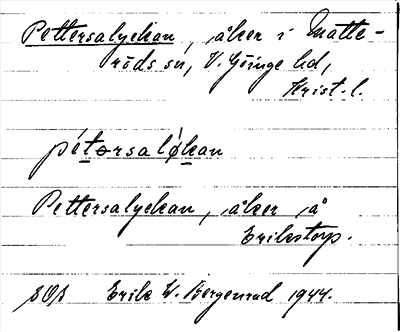 Pettersalyckan, åker i Matte-
röds sn, V. Göinge hd,
Krist. l.
pétərsalỳkan
Pettersalyckan, åker å
Erikstorp.
SOS Erik W. Bergenrud 1944.